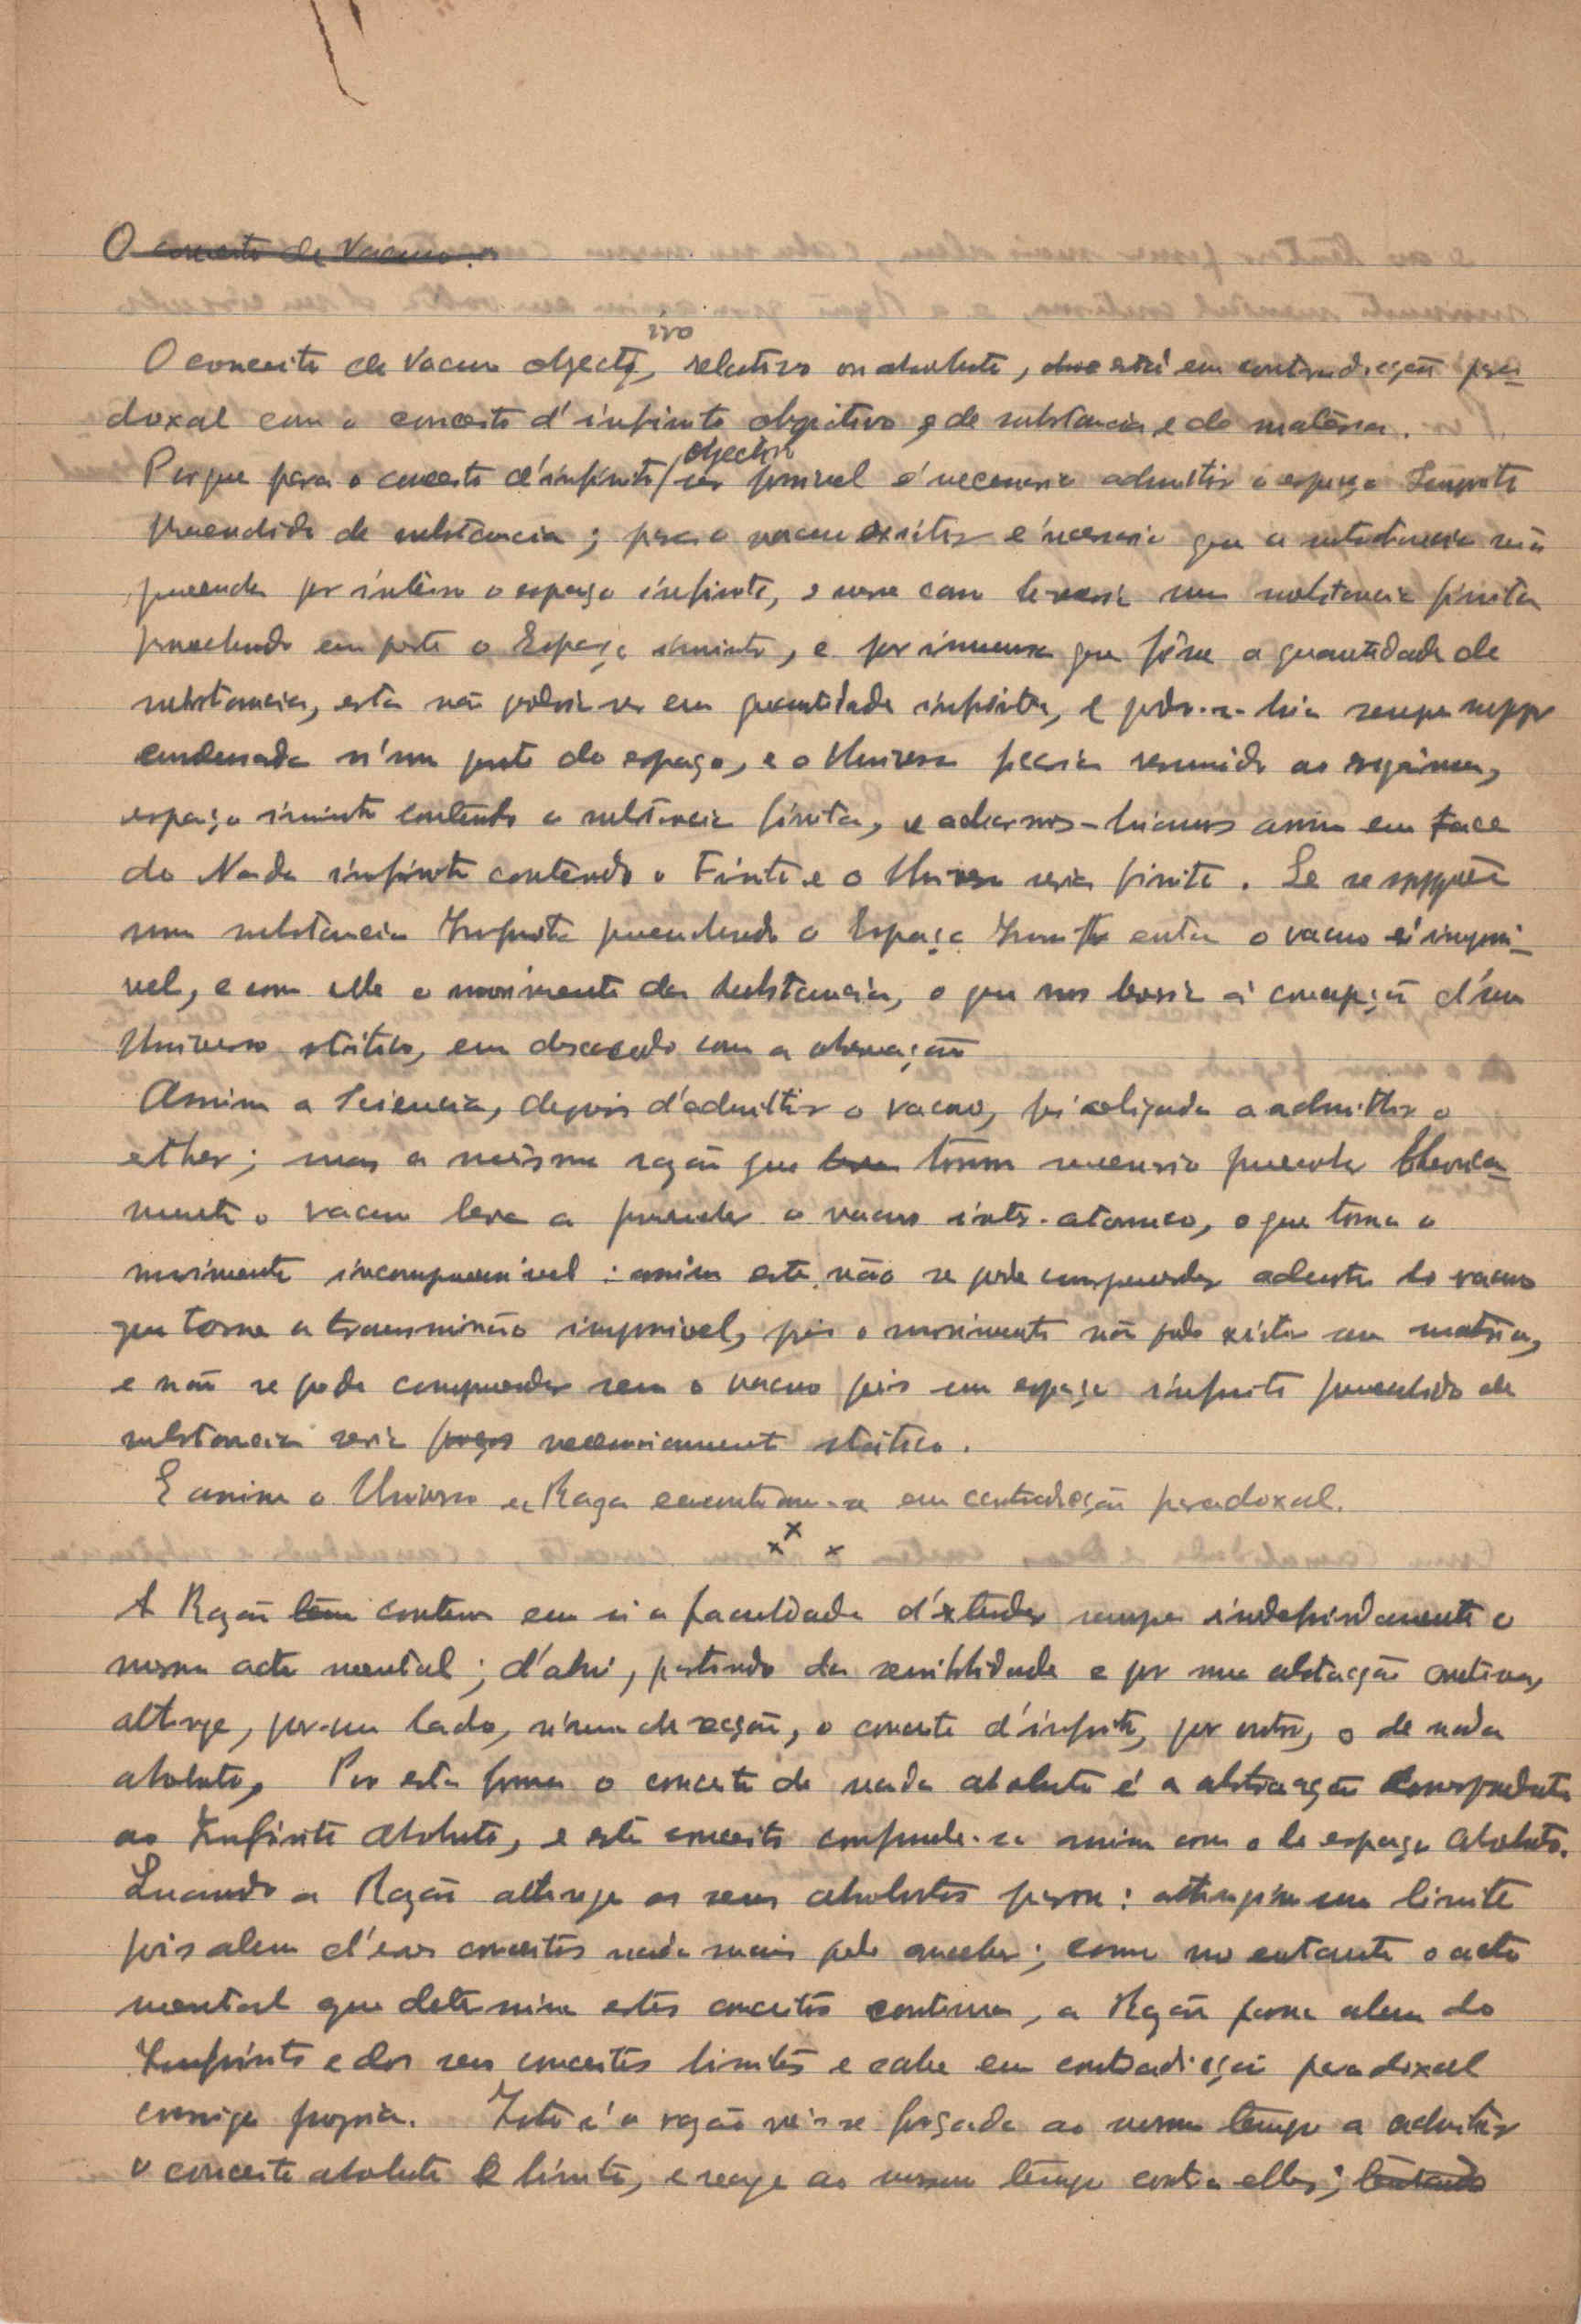 O conceito de Vacuo
O conceito de Vacuo objectivo, relativo ou absoluto, está em contradicção para-
doxal com o conceito d'infinito objectivo e de substancia e de materia.
Porque para o conceito d'infinito objectivo ser possivel é necessario admittir o espaço Infinito
preenchido de substancia; para o vacuo existir é necessario que a substancia não
preencha por inteiro o espaço infinito, e nesse caso haveria uma substancia finita
preenchendo em parte o Espaço infinito, e por immensa que fôsse a quantidade de
substancia, esta não poderia ser em quantidade infinita, e poder-se-hia sempre suppor
condensada n'um ponto do espaço, e o Universo ficaria resumido ao
espaço infinito contendo a substancia finita, e achar-nos-hiamos assim em face
do Nada infinito contendo o Finito e o Universo seria finito. Se se suppozer
uma substancia Infinita preenchendo o Espaço Infinito então o vacuo é impossi-
vel, e com elle o movimento da substancia, o que nos levaria á concepção d'um
Universo statico, em desacordo com a observação
Assim a Sciencia, depois d'admittir o vacuo, foi obrigada a admittir o
ether; mas a mesma razão que torna necessario preencher theorica-
mente o vacuo leva a preencher o vacuo inter-atomico, o que torna o
movimento incomprehensivel: assim este não se pode comprehender dentro do vacuo
que torna a transmissão impossivel, pois o movimento não pode existir sem materia,
e não se pode comprehender sem o vacuo pois um espaço infinito preenchido de
substancia seria necessariamente statico.
E assim o Universo e a Razão encontram-se em contradicção paradoxal.
x x x
A Razão tem contem em si a faculdade d'extender sempre indefinidamente o
mesmo acto mental; d'ahi, partindo da sensibilidade e por uma abstracção continua,
attinge, por um lado, n'uma direcção, o conceito d'infinito, por outro, o de nada
absoluto. Por esta forma o conceito de nada absoluto é a abstracção correspondente
ao Infinito absoluto, e este conceito confunde-se assim com o de espaço absoluto.
Quando a Razão attinge os seus absolutos parou: attingiu um limite
pois alem d'esses conceitos nada mais pode conceber; como no entanto o acto
mental que determina estes conceitos continua, a Razão passa alem do
Infinito e dos seus conceitos limites e cahe em contradicção paradoxal
comsigo propria. Isto é a razão vê-se forçada ao mesmo tempo a admittir
o conceito absoluto e limite, e reage ao mesmo tempo contra elles; tentando